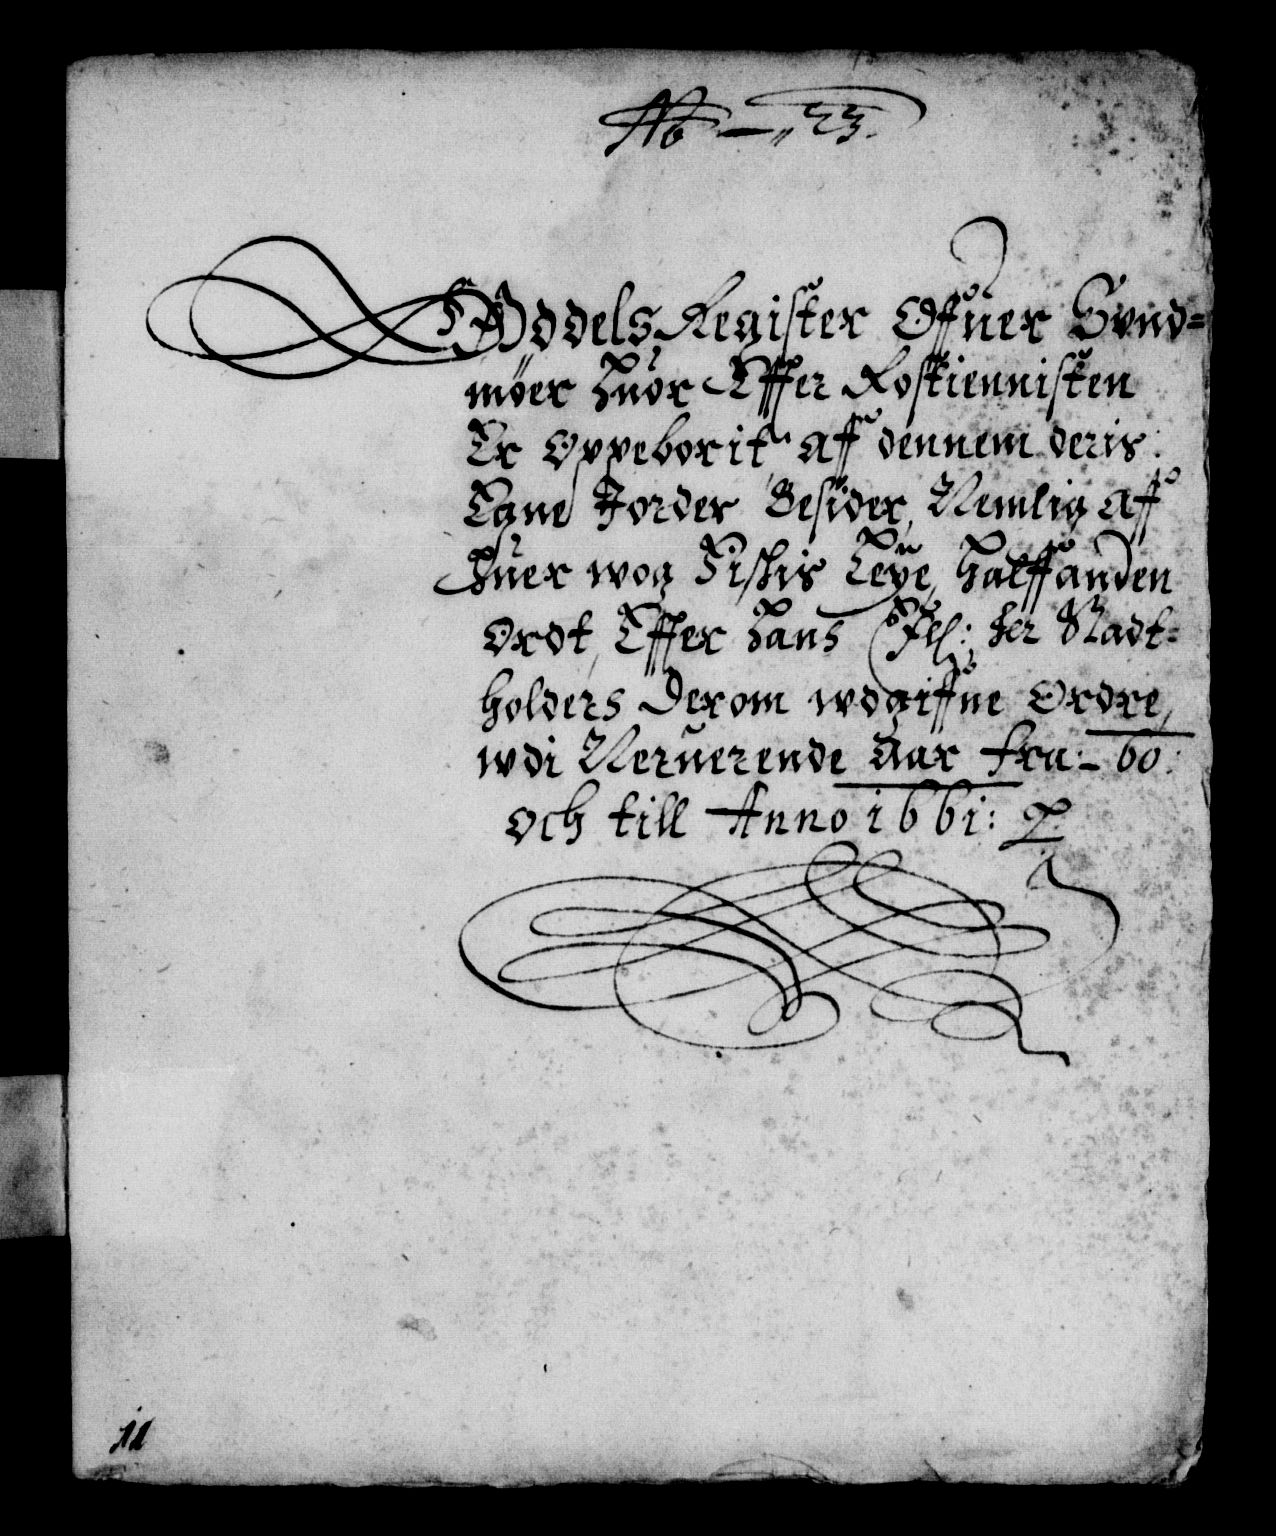 No — „ 23.
Oddels Register Offuer Sund=
möer huor Effter Roskiennisten
Er Oppeborit, aff dennem deris
Egne Jorder Besider, Nemlig aff
huer wog Fiskis Leye, halffanden
Ordt, Effter hans Gl: her Stadt=
holders Derom wdgiffne Ordre,
wdi Neruerende Aar fra: 60:
och till Anno 1661:
11